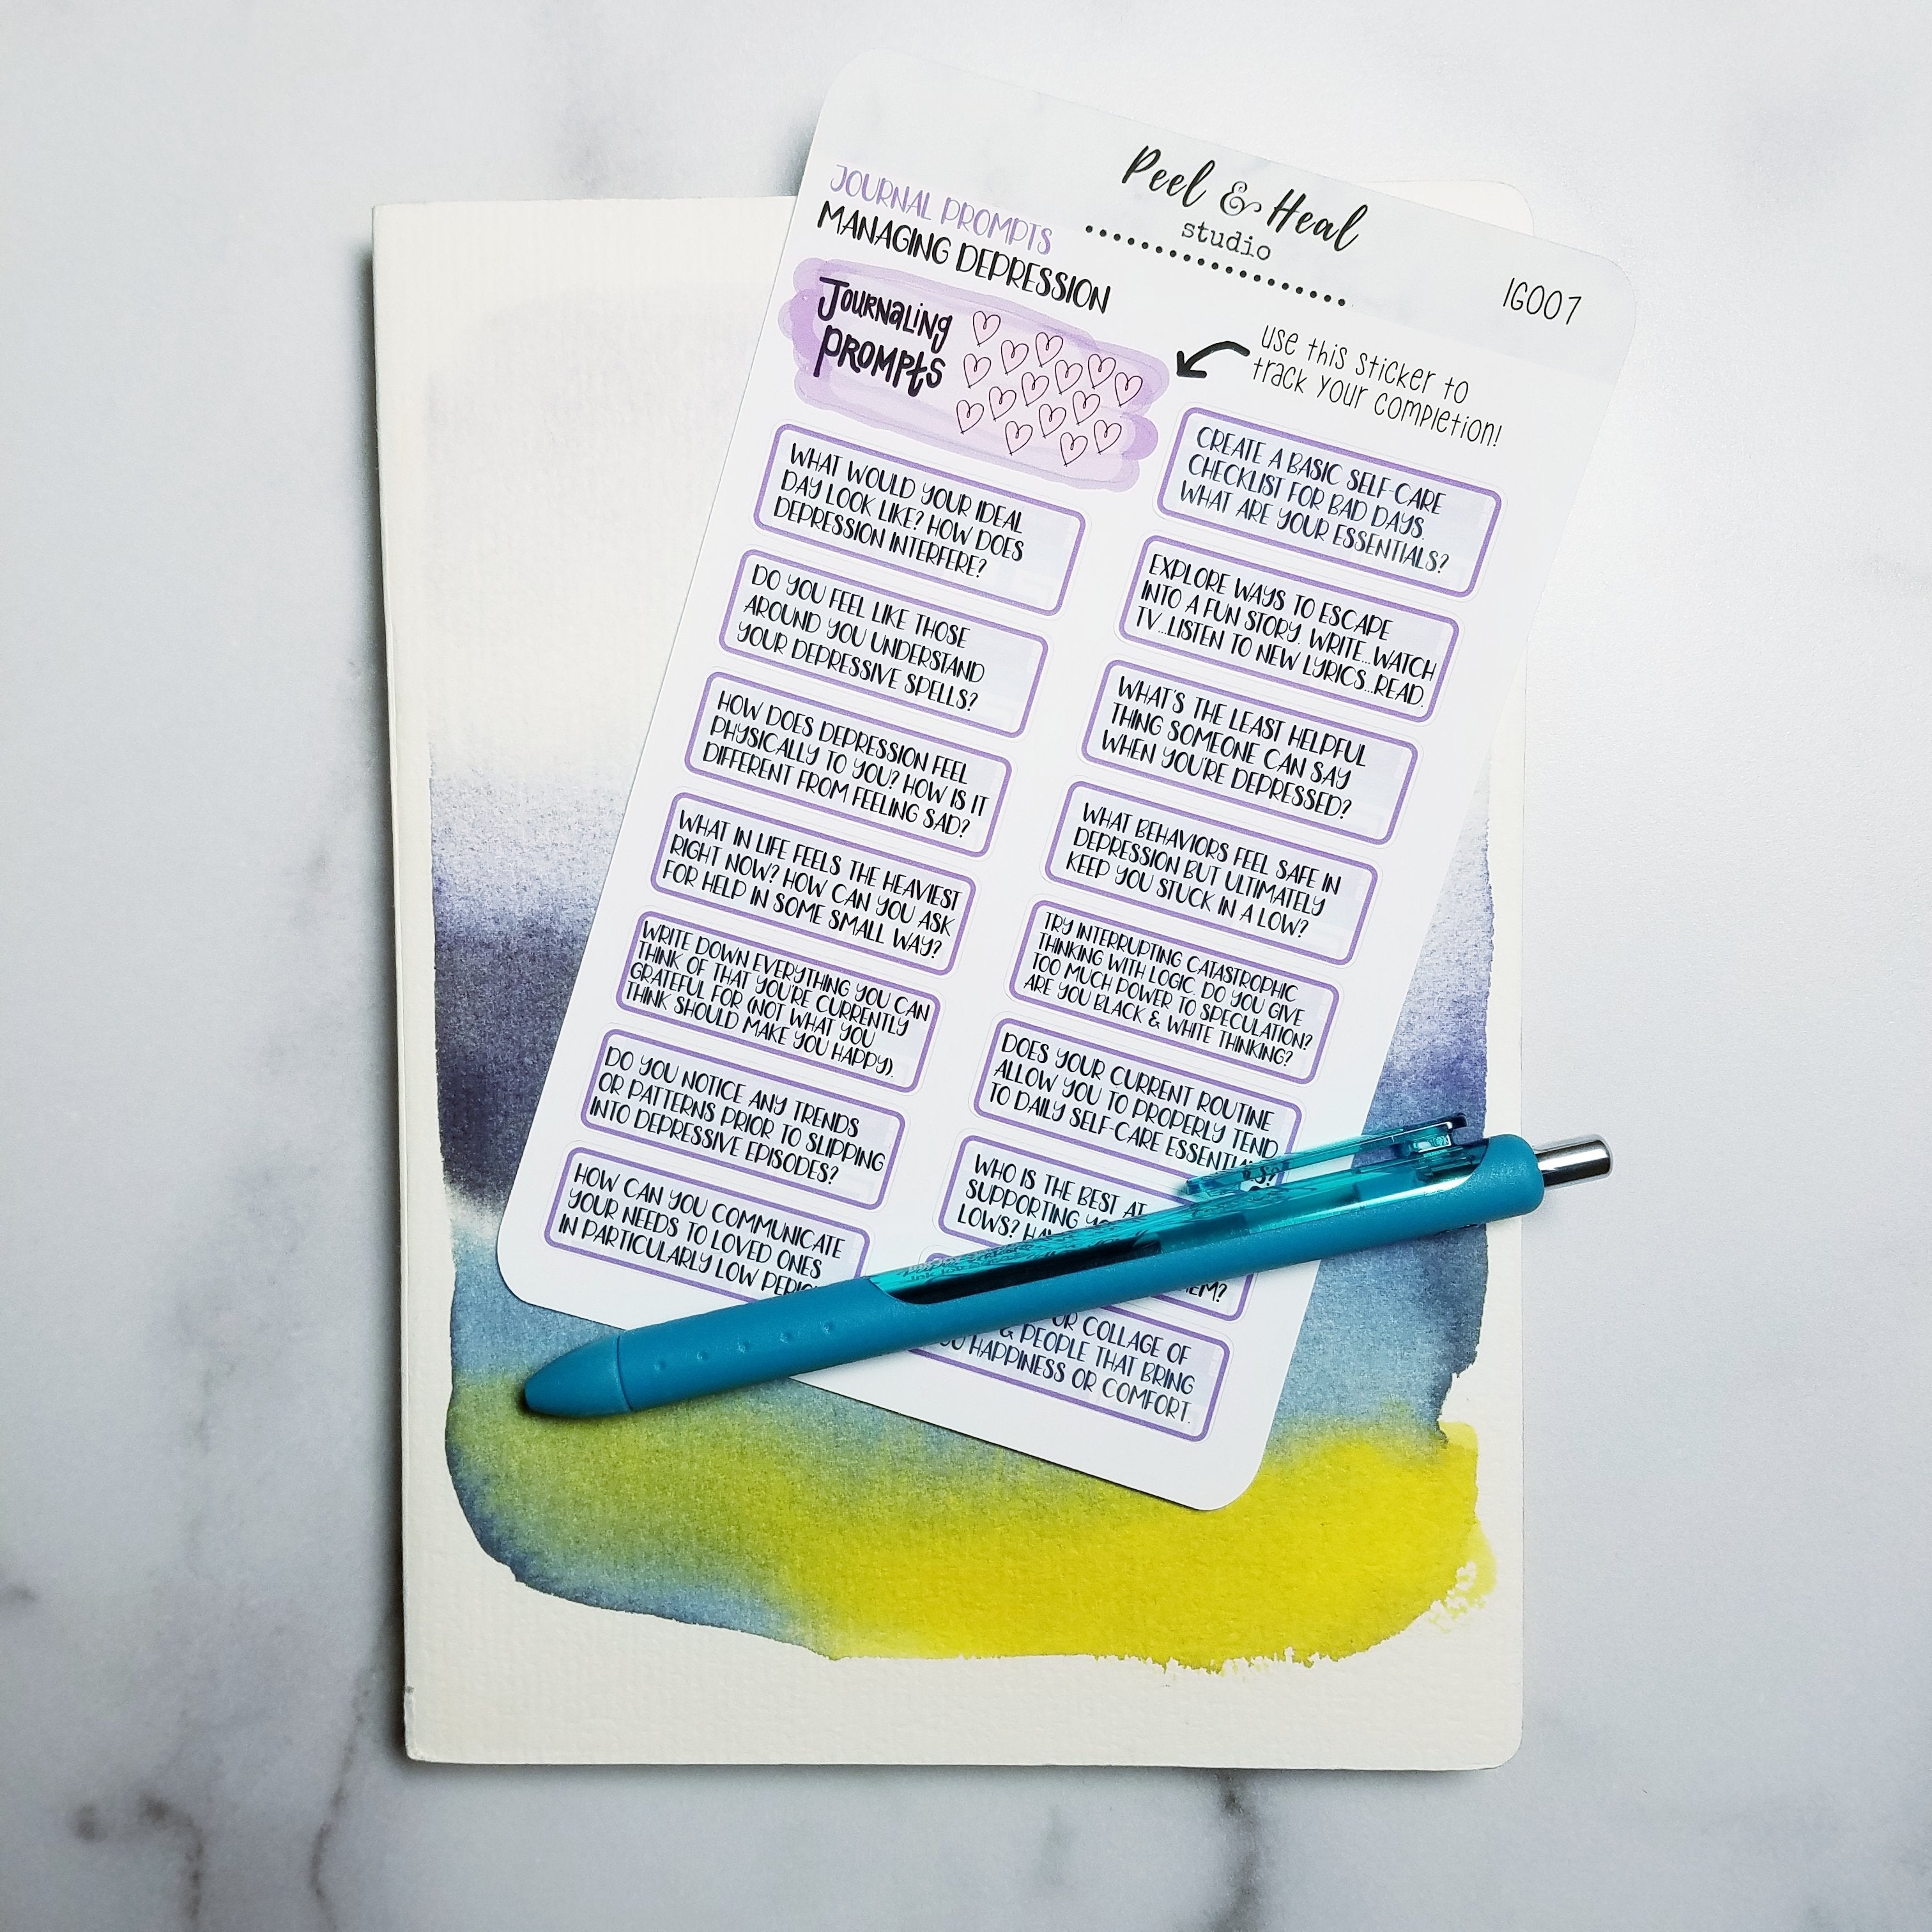 Peel & Heal
studio
JOURNAL PROMPTS
MANAGING DEPRESSION
IG007
JOURNALING
PROMPTS
USE THIS STICKER TO
TRACK YOUR COMPLETION!
WHAT WOULD YOUR IDEAL
DAY LOOK LIKE? HOW DOES
DEPRESSION INTERFERE?
DO YOU FEEL LIKE THOSE
AROUND YOU UNDERSTAND
YOUR DEPRESSIVE SPELLS?
HOW DOES DEPRESSION FEEL
PHYSICALLY TO YOU? HOW IS IT
DIFFERENT FROM FEELING SAD?
WHAT IN LIFE FEELS THE HEAVIEST
RIGHT NOW? HOW CAN YOU ASK
FOR HELP IN SOME SMALL WAY?
WRITE DOWN EVERYTHING YOU CAN
THINK OF THAT YOU'RE CURRENTLY
GRATEFUL FOR (NOT WHAT YOU
THINK SHOULD MAKE YOU HAPPY).
DO YOU NOTICE ANY TRENDS
OR PATTERNS PRIOR TO SLIPPING
INTO DEPRESSIVE EPISODES?
HOW CAN YOU COMMUNICATE
YOUR NEEDS TO LOVED ONES
IN PARTICULARLY LOW
CREATE A BASIC SELF-CARE
CHECKLIST FOR BAD DAYS.
WHAT ARE YOUR ESSENTIALS?
EXPLORE WAYS TO ESCAPE
INTO A FUN STORY. WRITE...WATCH
TV...LISTEN TO NEW LYRICS...READ.
WHAT'S THE LEAST HELPFUL
THING SOMEONE CAN SAY
WHEN YOU'RE DEPRESSED?
WHAT BEHAVIORS FEEL SAFE IN
DEPRESSION BUT ULTIMATELY
KEEP YOU STUCK IN A LOW?
TRY INTERRUPTING CATASTROPHIC
THINKING WITH LOGIC. DO YOU GIVE
TOO MUCH POWER TO SPECULATION?
ARE YOU BLACK & WHITE THINKING?
DOES YOUR CURRENT ROUTINE
ALLOW YOU TO PROPERLY TEND
TO DAILY SELF-CARE ESSENTIALS?
WHO IS THE BEST AT
SUPPORTING
LOWS?
OR COLLAGE OF
& PEOPLE THAT BRING
YOU HAPPINESS OR COMFORT.